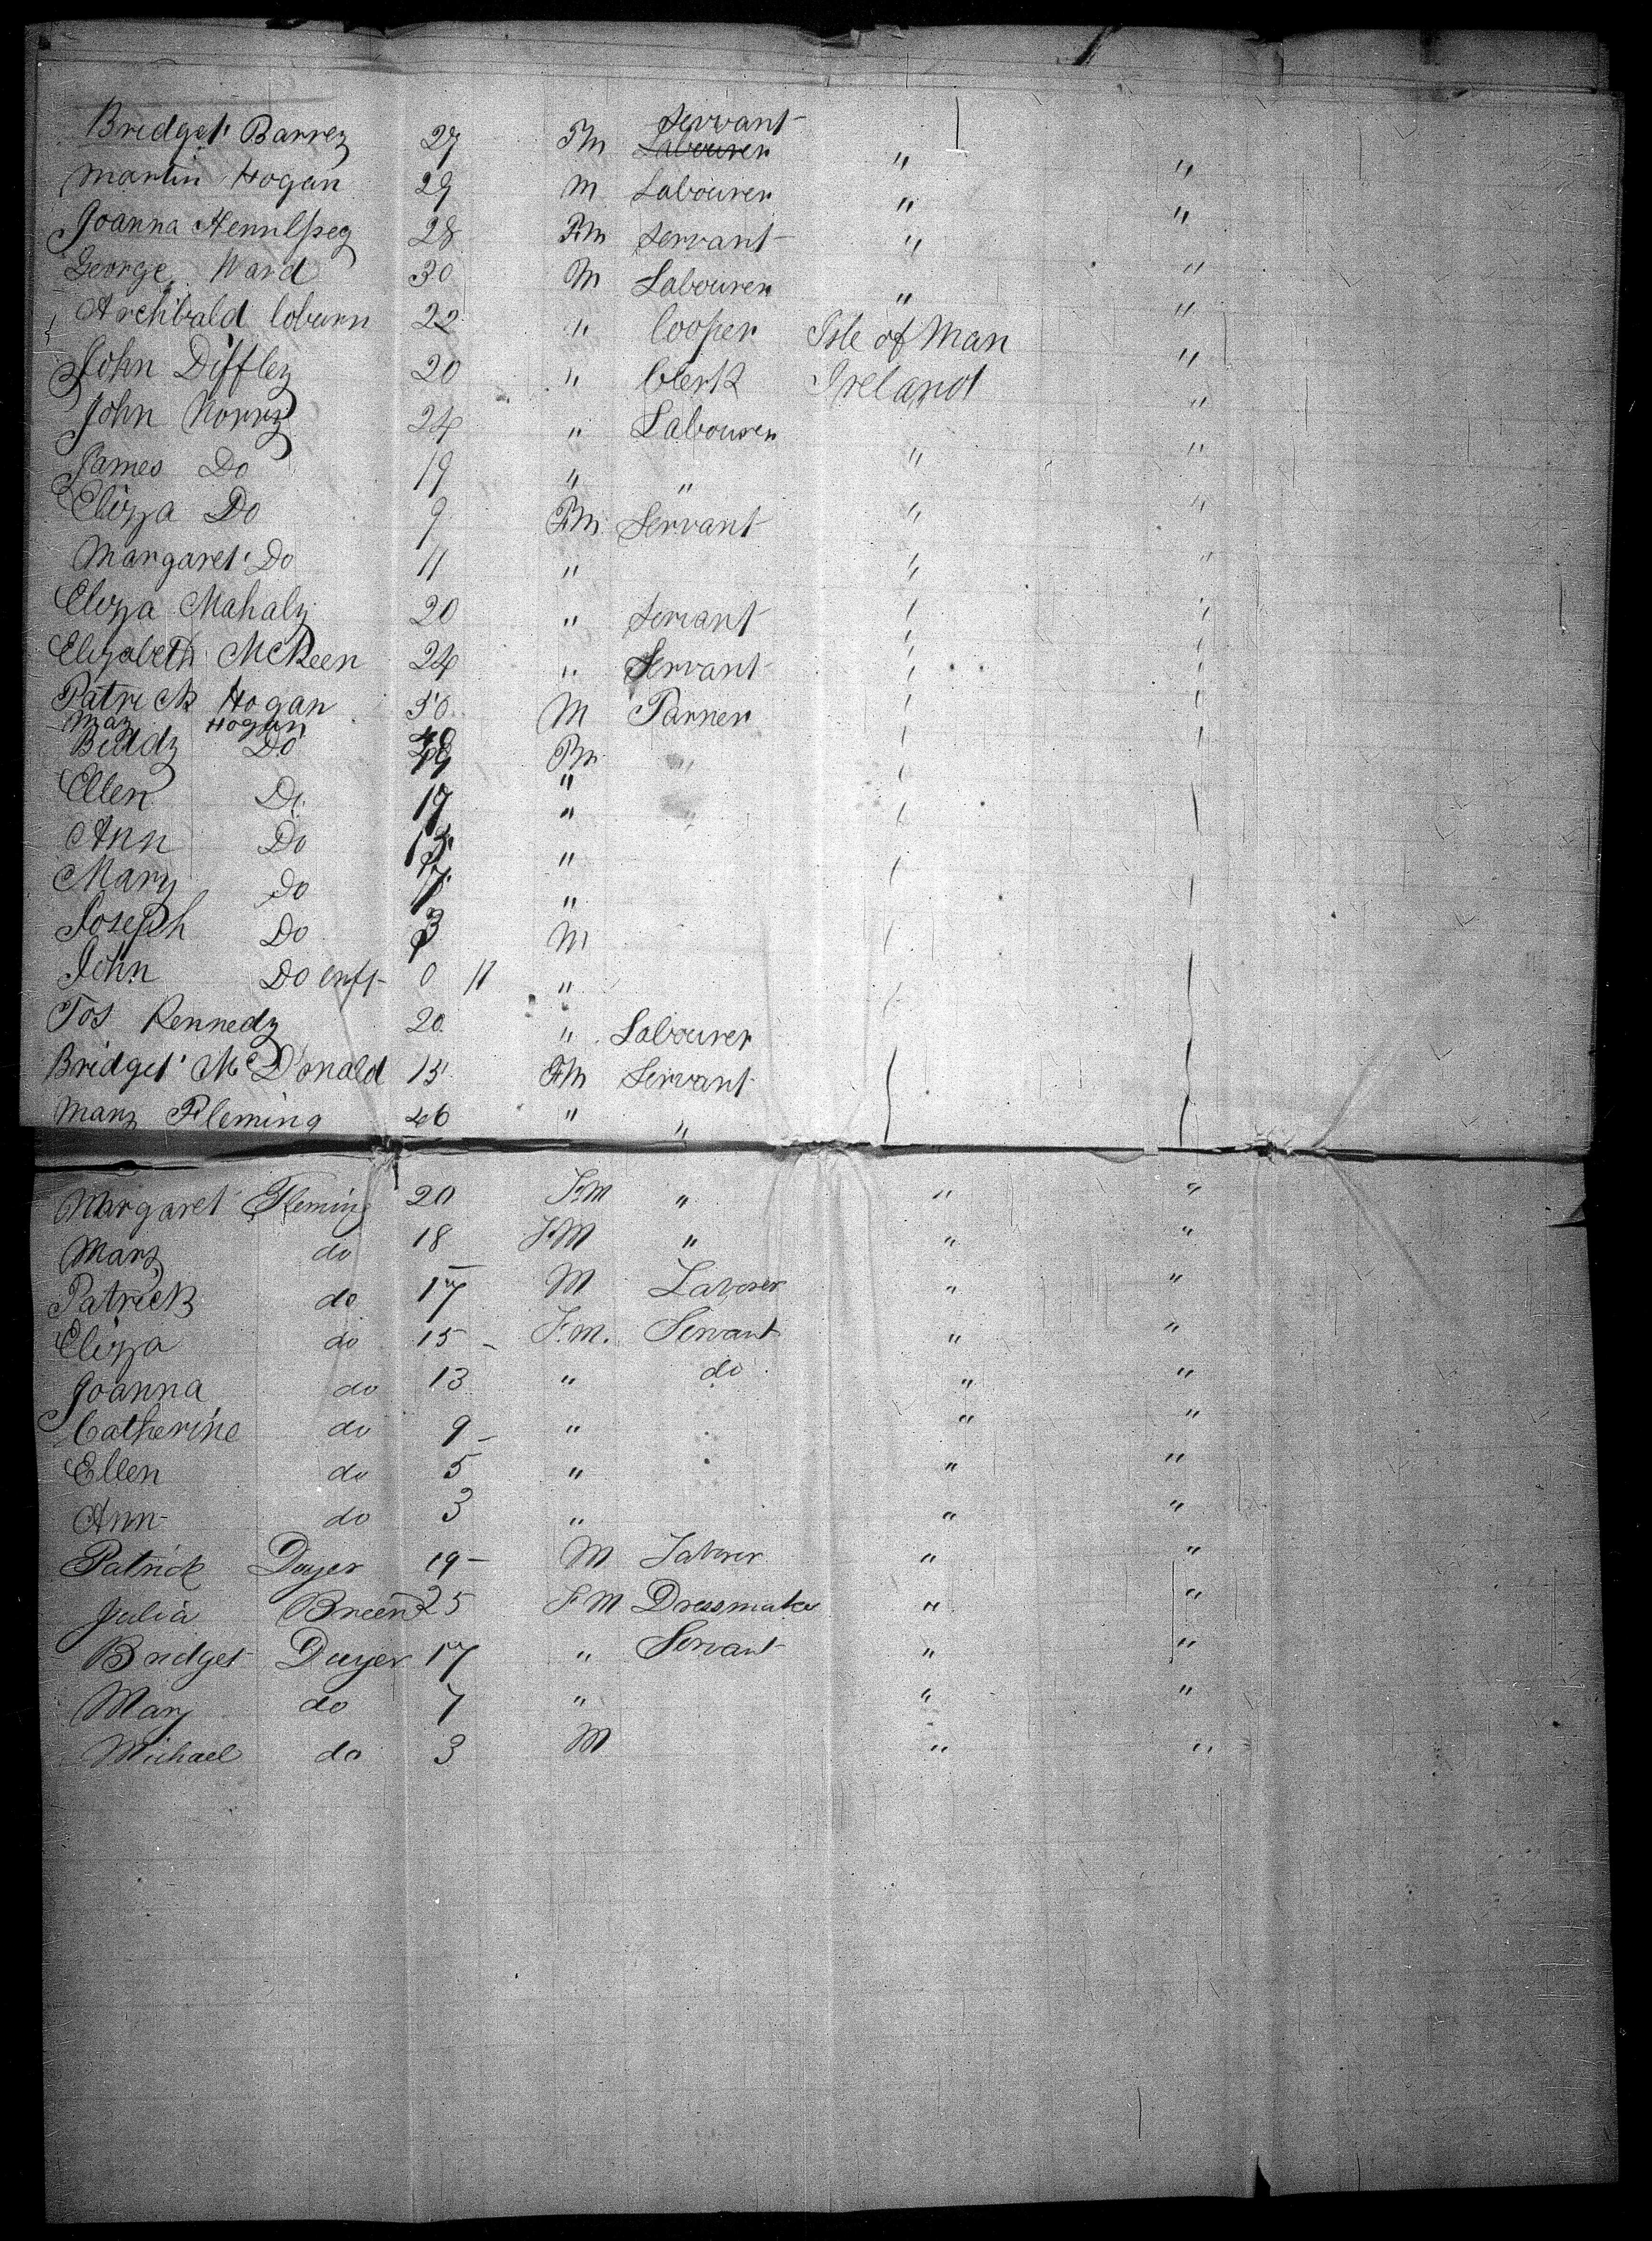 Bridget Barrey 27 Fm Servant Labourer " "
Martin Hogan 29 M Labourer " "
Joanna 28 Fm Servant " "
George Ward 30 M Labourer " "
Archibald Coburn 22 " Cooper Isle of Man "
John Diffley 20 " Clerk Ireland "
John Norry 24 " Labourer " "
James Do 19 " " " "
Eliza Do 9 Fm Servant " "
Margaret Do 11 " " "
Eliza Mahaly 20 " Servant " "
Elizabeth McKeen 24 " Servant " "
Patrick Hogan 50 M Farmer
May Hogan 40
Biddy Do 19 Fm "
Ellen Do 17 "
Ann Do 13 "
Mary Do 7 "
Joseph Do 3 M
John Do Inft 0 11 "
Tos Kennedy 20 " Labourer
Bridget McDonald 15 Fm Servant
Mary Fleming 46 " "
Margaret Fleming 20 F.M " " "
Mary do 18 F.M " " "
Patrick do 17 M Laborer " "
Eliza do 15 - F.m. Servant " "
Joanna do 13 " do " "
Catherine do 9 - " " "
Ellen do 5 " " "
Ann do 3 " " "
Patrick Dwyer 19 - M Laborer " "
Julia Breen 25 F M Dressmaker " "
Bridget Dwyer 17 " Servant " "
Mary do 7 " " "
Michael do 3 M " "